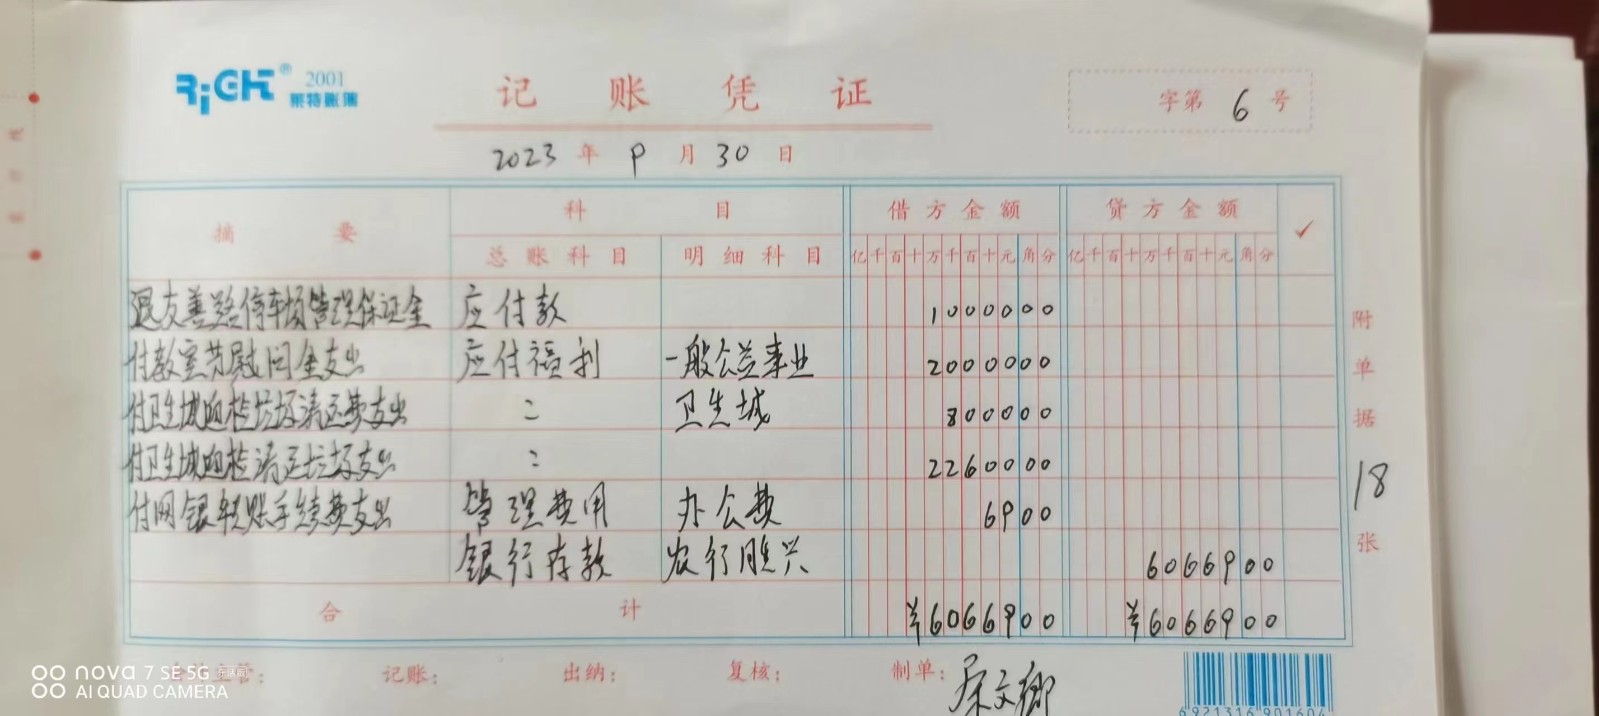 RiGHT® 2001
莱特账簿
记账凭证
字第 6 号
2023 年 9 月 30 日
摘要 科目 借方金额 贷方金额 ✓
总账科目 明细科目 亿千百十万千百十元角分 亿千百十万千百十元角分
退友善路停车场管理保证金 应付款 1000000
付教室节慰问金支出 应付福利 一般公益事业 2000000
付卫生城的检垃圾清运费支出 〃 卫生城 800000
付卫生城的检清运垃圾支出 〃 2260000
付网银转账手续费支出 管理费用 办公费 6900
银行存款 农行胜兴 6066900
合计 ¥6066900 ¥6066900
附单据 18 张
记账: 出纳: 复核: 制单:
nova 7 SE 5G
AI QUAD CAMERA
6921316901604